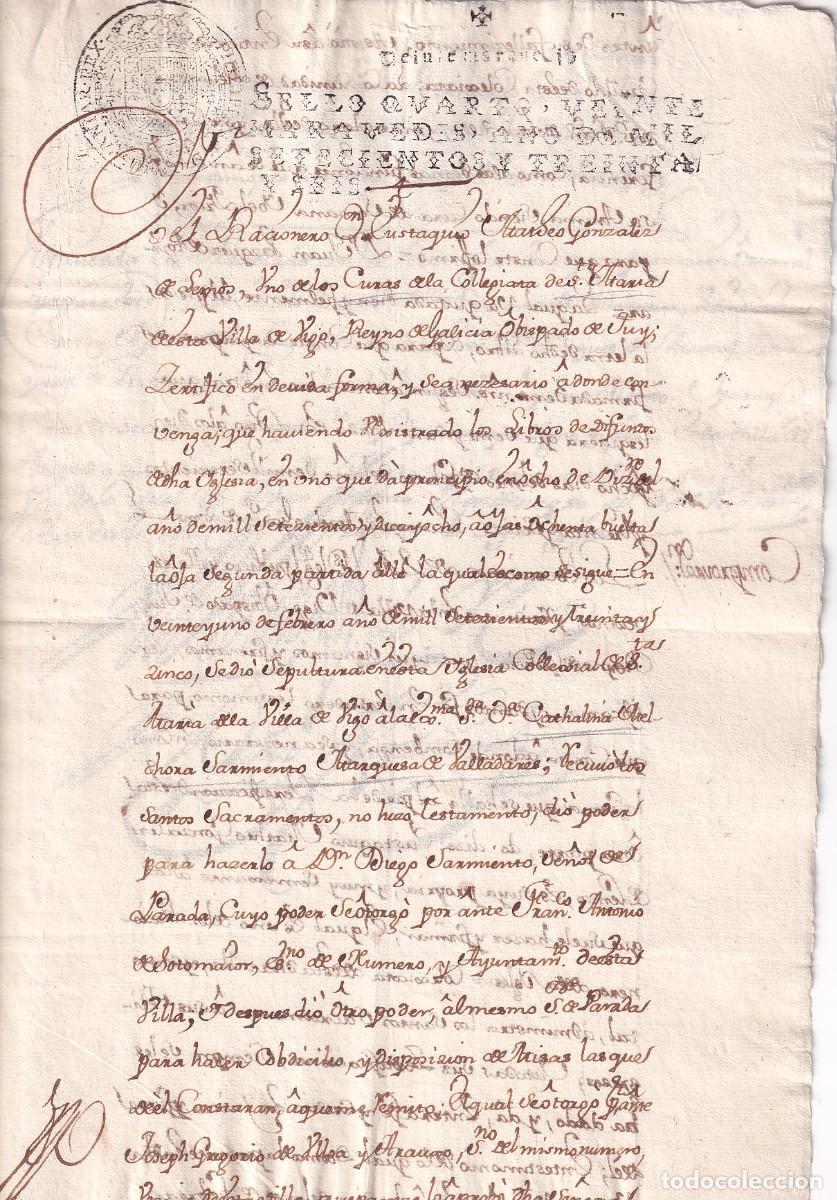 Veinte maravedis
SELLO QVARTO, VEINTE
MARAVEDIS, AÑO DE MIL
SETECIENTOS Y TREINTA
Y SEIS.
Racionero Dn Eustaquio Marcos Gonzalez
de Sepios, Uno de los Curas de la Collegiata de Sta Maria
desta Villa de Vigo, Reyno de Galicia Obispado de Tuy;
Zertifico en devida forma, y sea nezesario â donde con-
venga; que haviendo rexistrado los Libros de Difuntos
de dha Yglesia, en uno que dà principio en ocho de Dizre del
año de mill setezientos y diez y ocho, â ôjas ôchenta buelta
la ôja segunda partida della la qual es como se sigue = En
veinte y uno de febrero año de mill setezientos y treinta y
zinco, se diò sepultura en esta Yglesia Collegial de Sta
Maria de la Villa de Vigo â la exma Sa Da Cathalina Mel-
chora Sarmiento Marquesa de Valladares; recivió los
Santos Sacramentos, no hizo testamento, dió poder
para hazerlo â Dn Diego Sarmiento, señor de
Parada, cuyo poder se ôtorgò por ante Franco Antonio
de Sotomaior, esno de Numero, y Ayuntamto de esta
Villa; y despues dió ôtro poder, âl mesmo Sr de Parada
para hacer Cobdicilio, y disposizion de Misas las que
de el constaran, â que me remito; el qual se ôtorgo pr ante
Joseph Gregorio de Ulloa y Araujo, sno del mismo numero,
Comprovada
todocoleccion